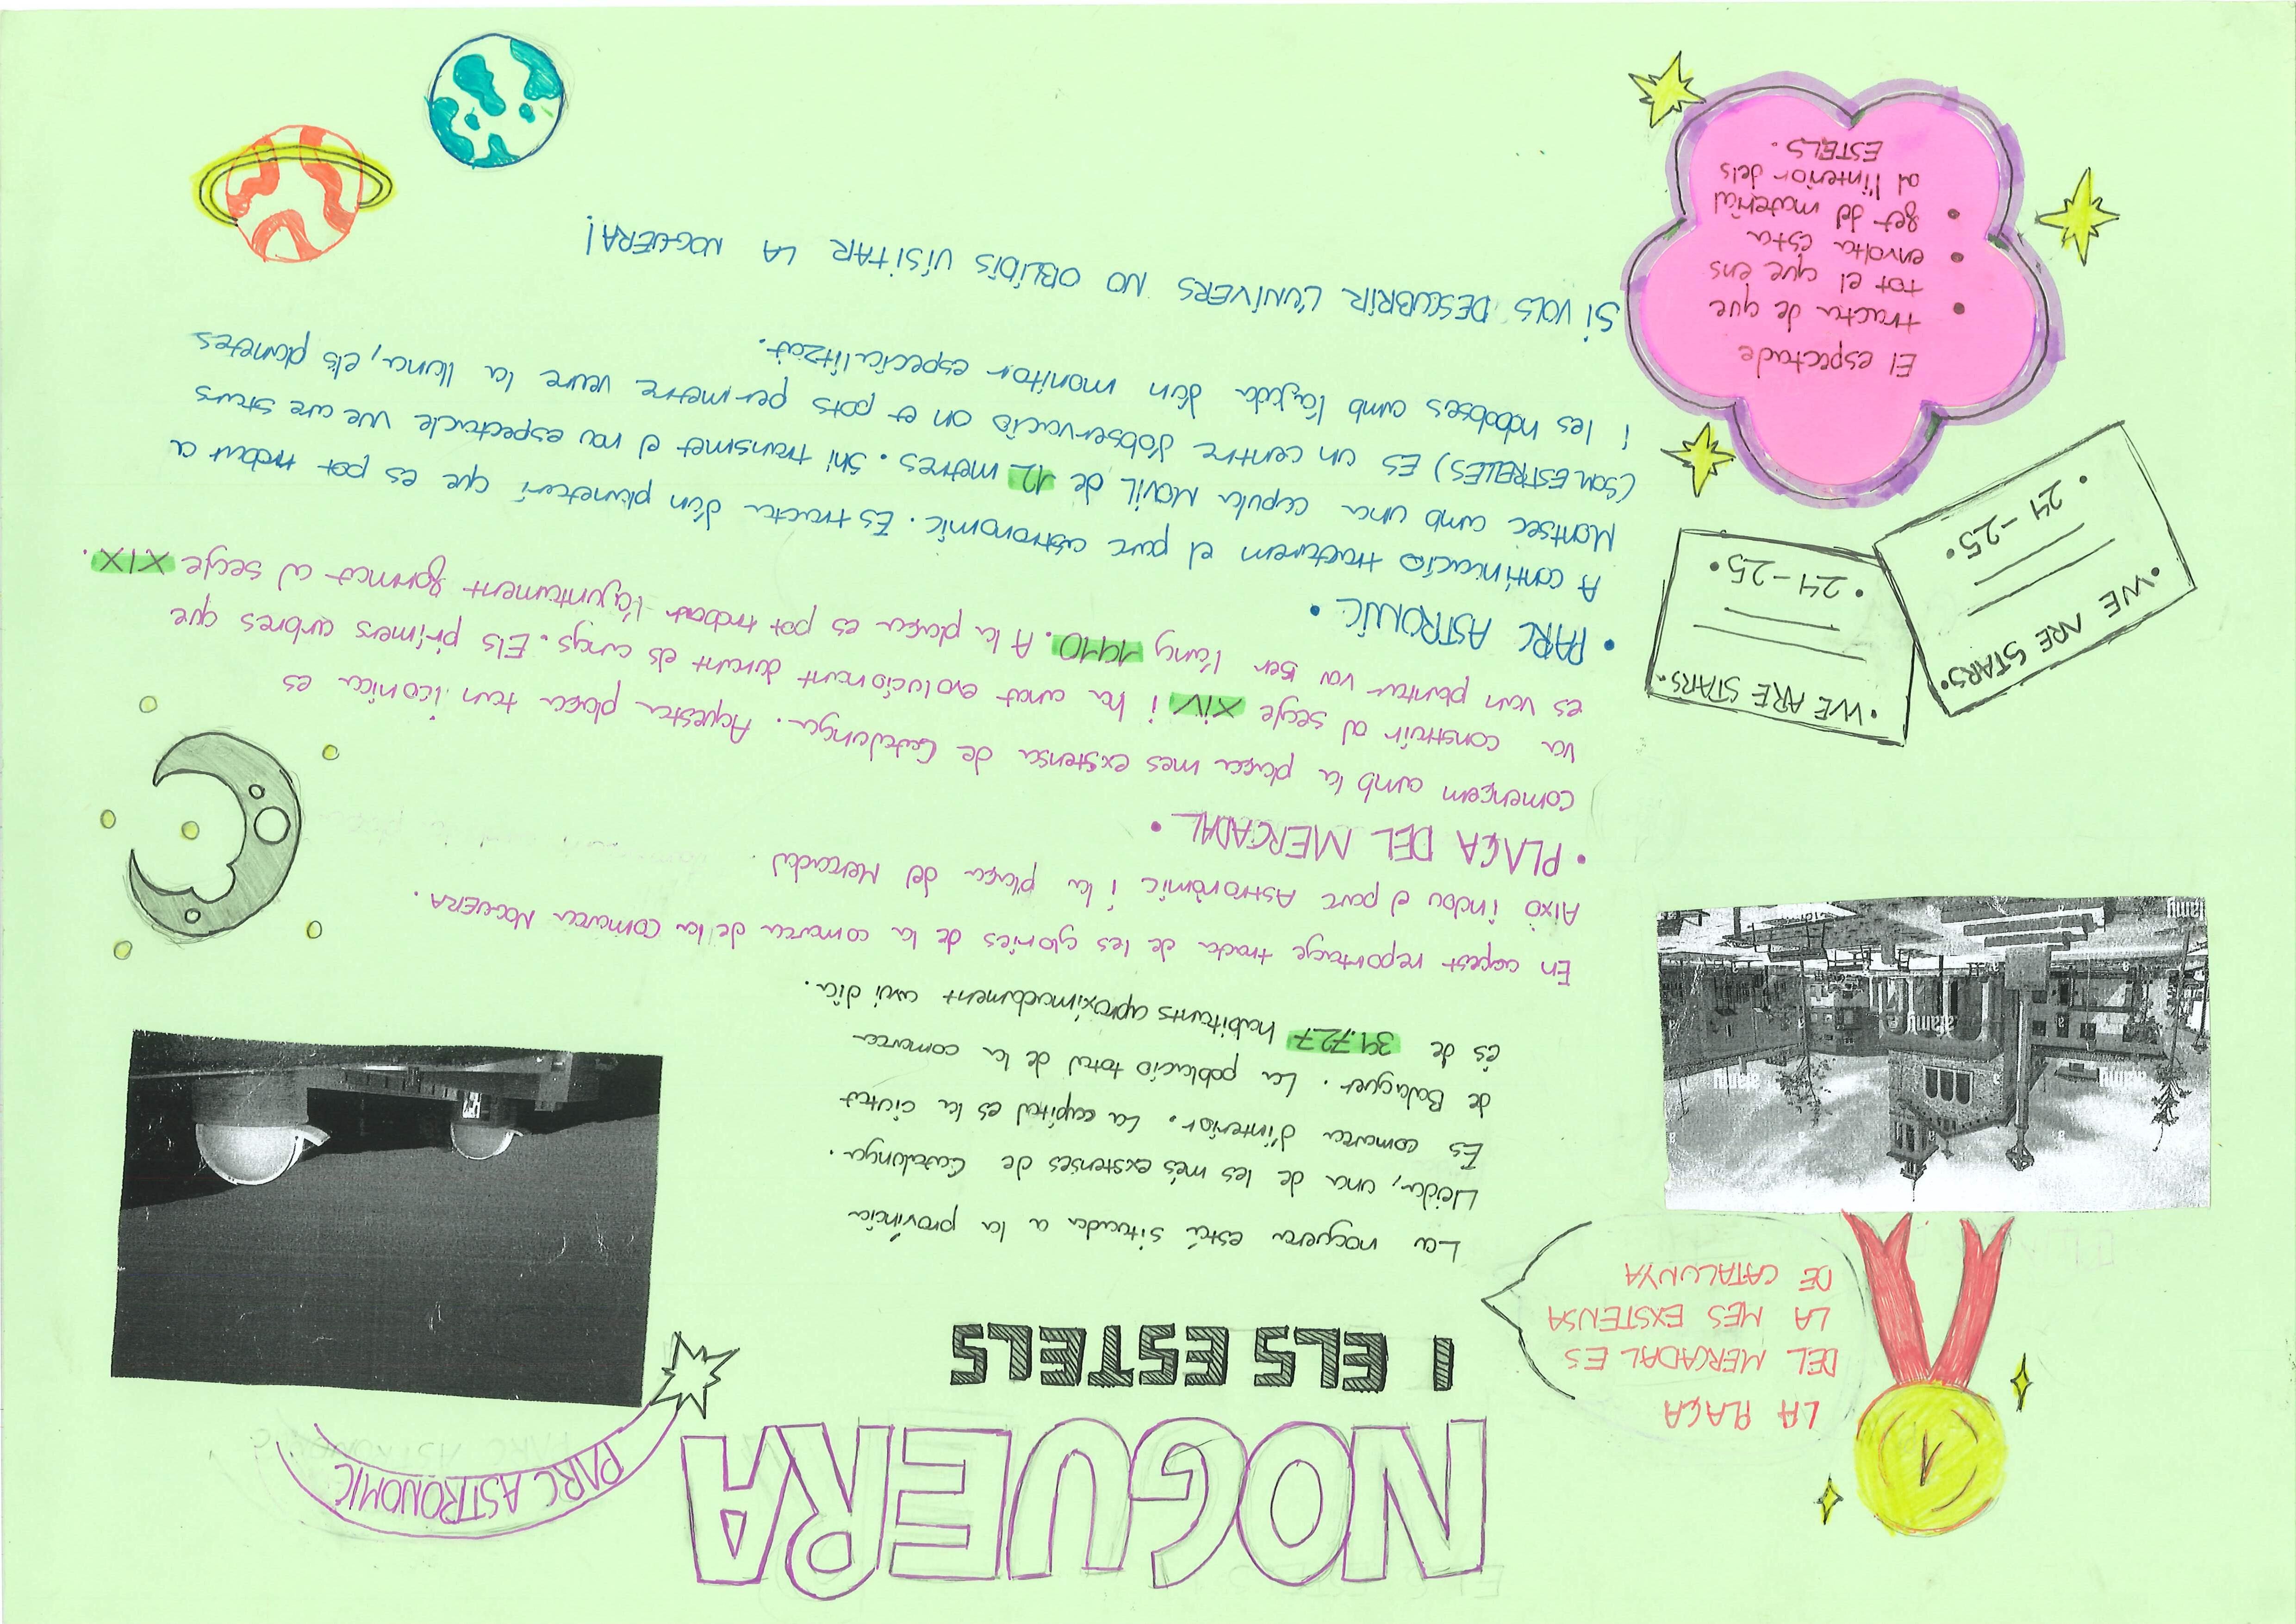 NOGUERA
I ELS ESTELS
LA PLAÇA
DEL MERCADAL ES
LA MES EXSTENSA
DE CATALUNYA
PARC ASTRONOMIC
La noguera està situada a la província
Lleida, una de les més exstenses de Catalunya.
Es comarca d'interior. La capital es la ciutat
de Balaguer. La població total de la comarca
és de 39.727 habitants aproximadament avui dia.
En aqest reportage trada de les glories de la comarca de la comarca NOGUERA.
Això indou el parc Astronòmic i la plaça del Mercadal
• PLAÇA DEL MERCADAL •
començem amb la plaça mes exstensa de Catalunya. Aquesta plaça tan iconica es
va construir al segle XIV i ha anat evolucionant durant els anys. Els primers arbres que
es van plantar va ser l'any 1910. A la plaça es pot trobar l'ajuntament format al segle XIX.
• PARC ASTRONIC •
A continuació tractarem el parc astronomic. Es tracta d'un planetari que es pot trobar a
Montsec amb una cupula MOVIL de 12 metres. S'hi transmet el nou espectacle we are stars
(SOM ESTRELLES) ES un centre d'observació on et pots permetre veure la lluna, els planetes
i les nebuloses amb l'ajuda d'un monitor especialitzat.
SI VOLS DESCUBRIR L'UNIVERS NO OBLIDIS VISITAR LA NOGUERA!
• WE ARE STARS •
• 24-25 •
• WE ARE STARS •
• 24-25 •
El espectacle
tracta de que
tot el que ens
envolta esta
fet del material
al l'interior dels
ESTELS.
alamy
alamy
alamy
alamy
1